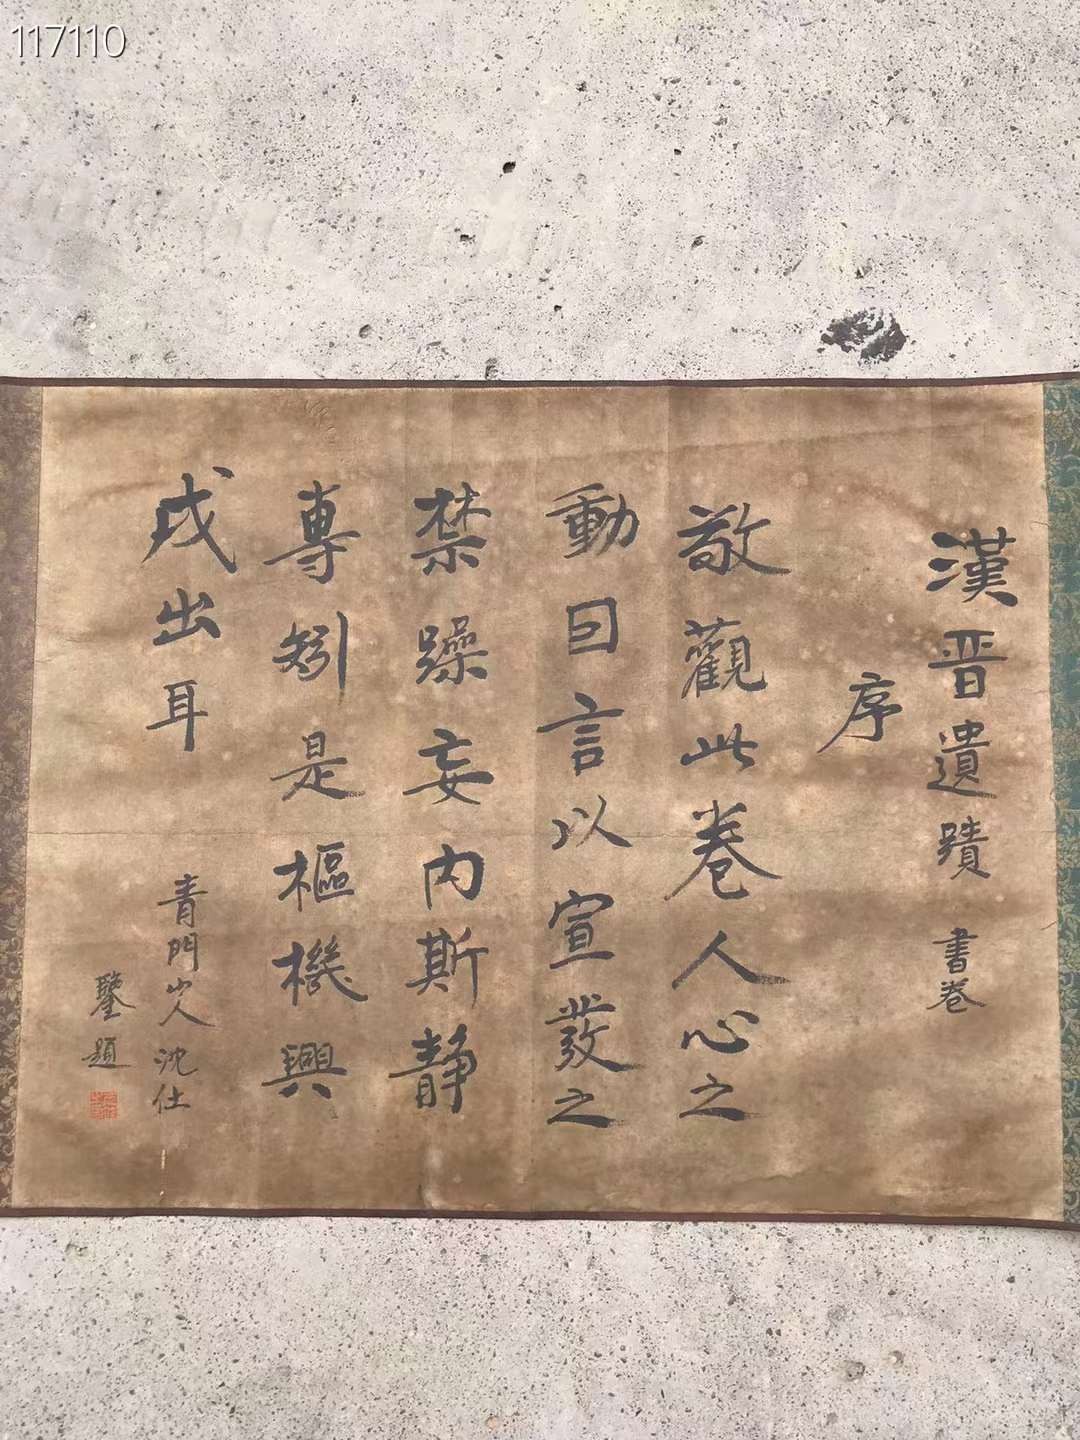 117110
漢晋遺蹟 書卷
序
敬觀此卷人心之
動曰言以宣發之
禁躁妄内斯靜
專矧是樞機興
戎出耳
青門山人沈仕
鑒題